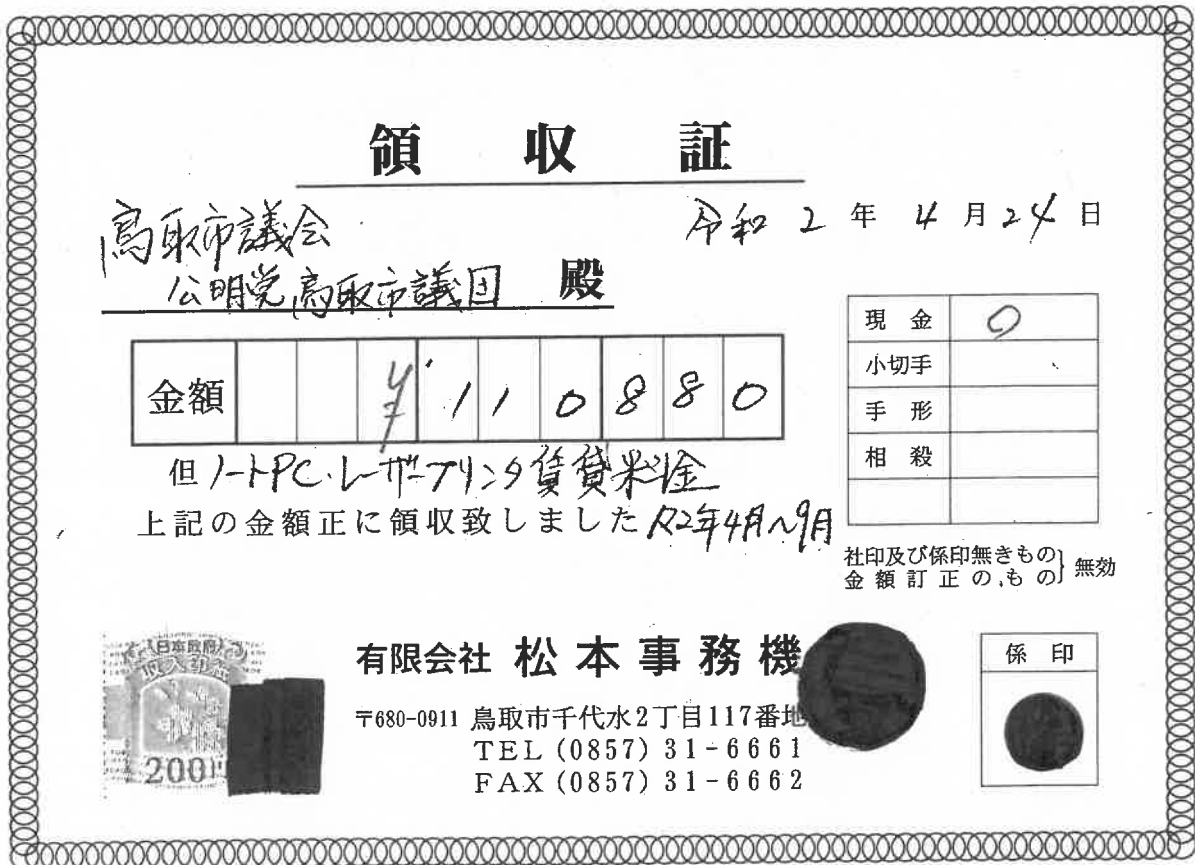 領収証
令和2年4月24日
鳥取市議会
公明党鳥取市議団 殿
金額 ¥110880
但 ノートPC・レーザープリンタ賃貸料金
上記の金額正に領収致しました R2年4月~9月
現金 0
小切手
手形
相殺
社印及び係印無きもの
金額訂正のもの} 無効
日本政府
収入印
200
有限会社 松本事務機
〒680-0911 鳥取市千代水2丁目117番地
TEL (0857) 31-6661
FAX (0857) 31-6662
係印